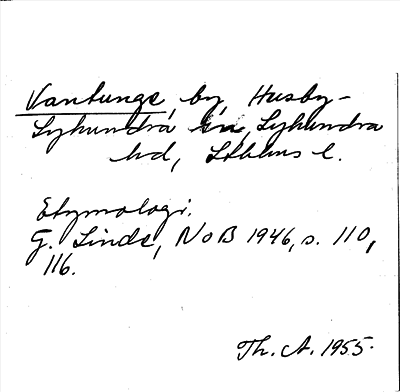 Vantunge, by, Husby-
Lyhundra sn, Lyhundra
hd, Sthlms l.
Etymologi.
G. Linde, NoB 1946, s. 110,
116.
Th. A. 1955.